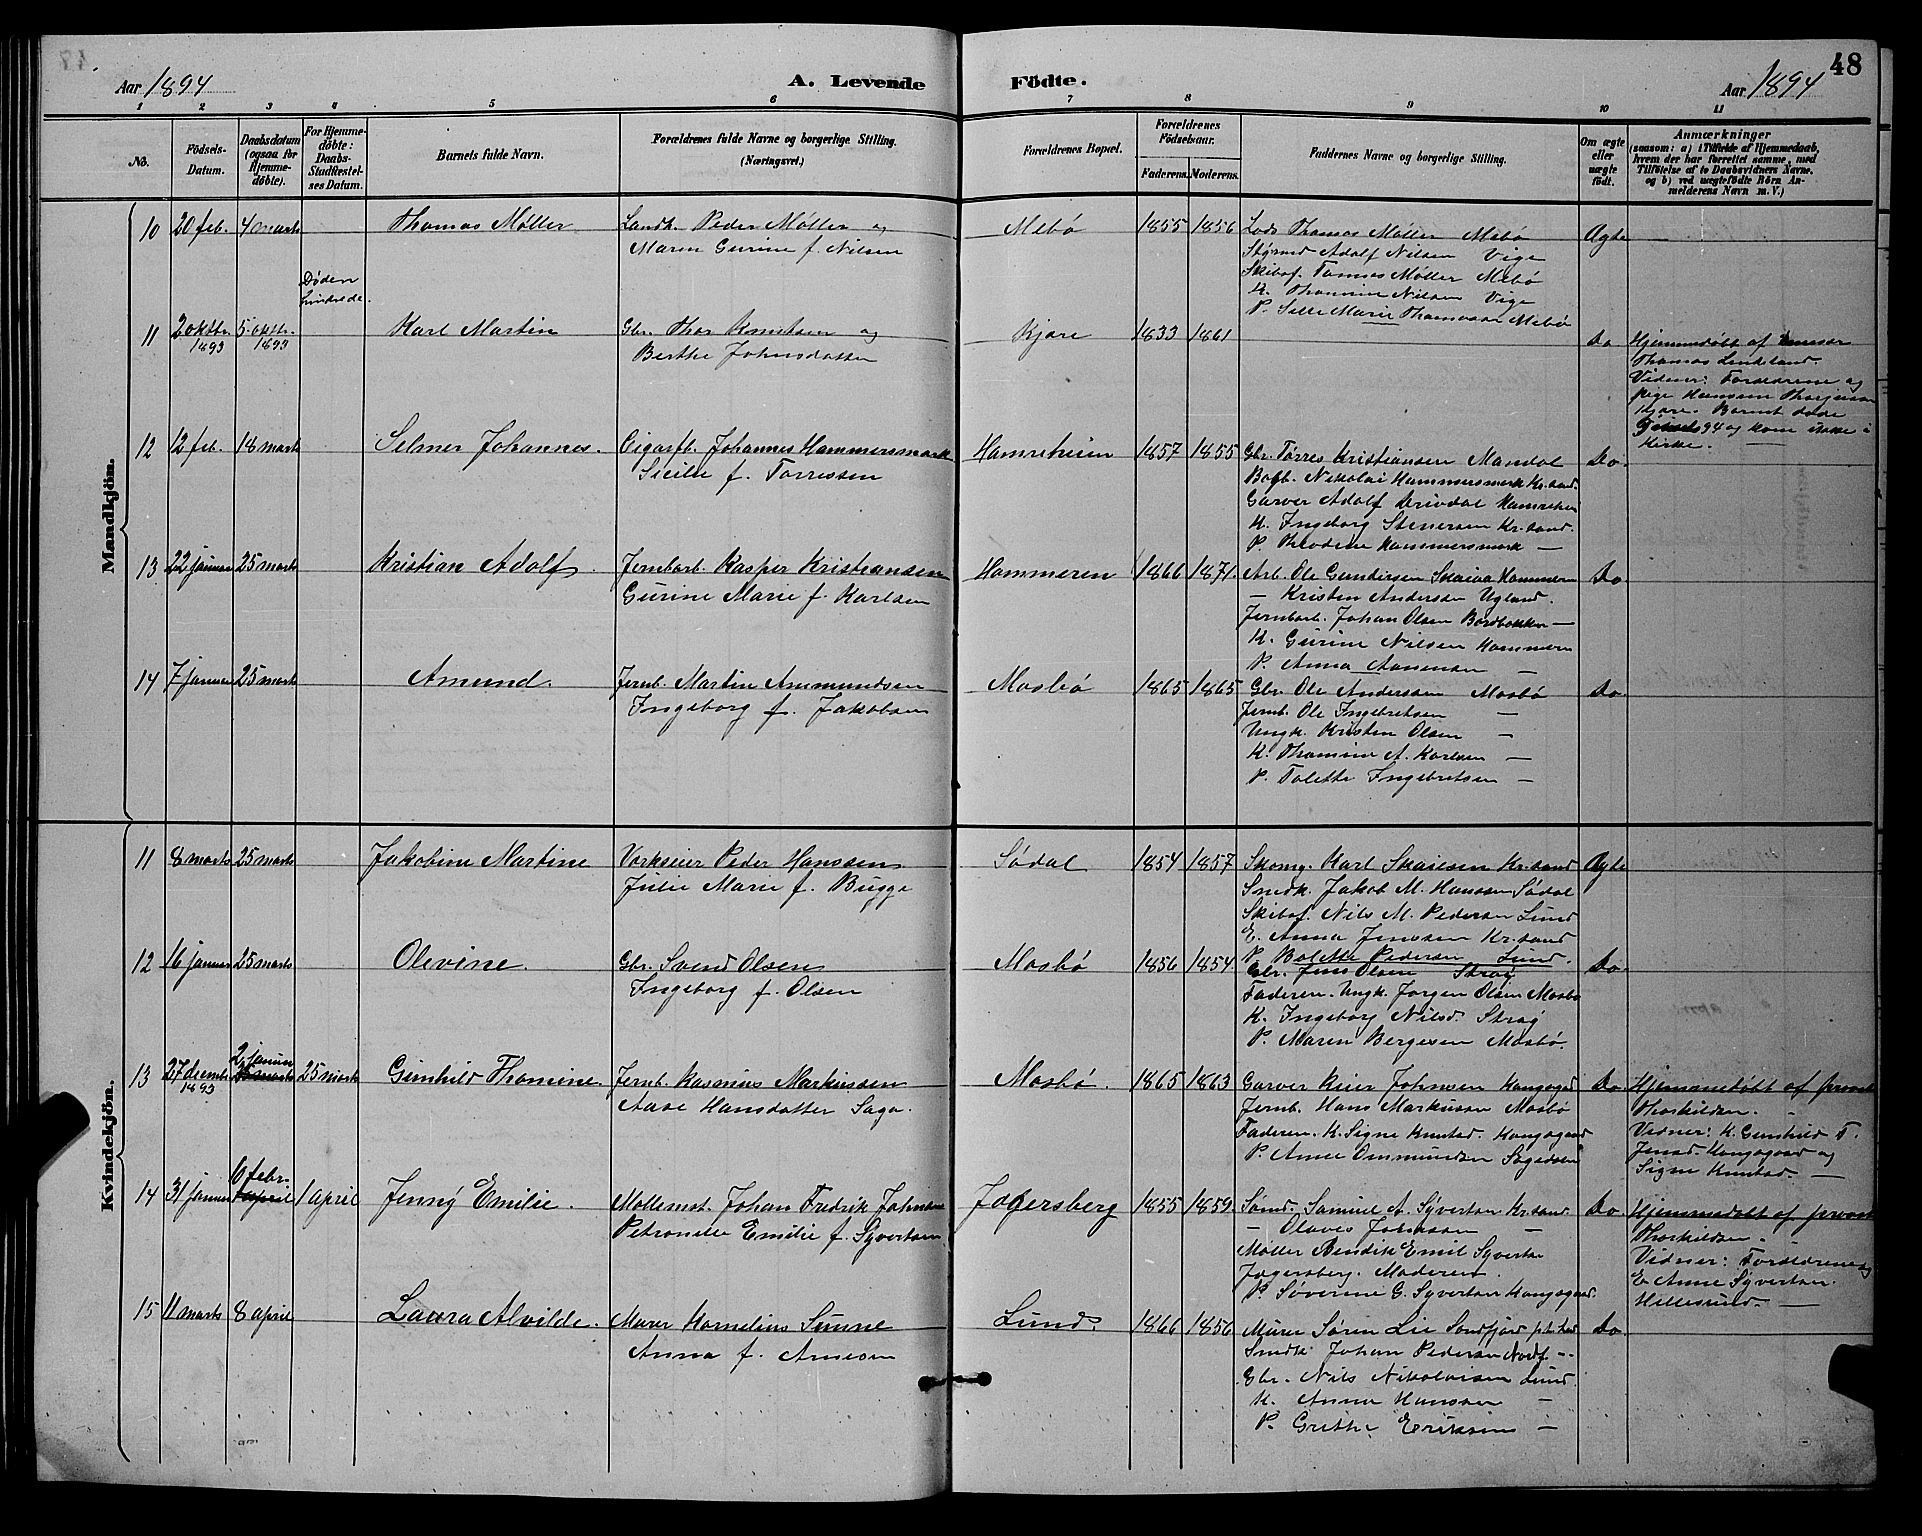 48
Aar 1894
A. Levende Födte.
Aar 1894
1 2 3 4 5 6 7 8 9 10 11
No.
Födsels-Datum.
Daabsdatum (ogsaa for Hjemme-döbte).
For Hjemme-döbte: Daabs-Stadfæstel-ses Datum.
Barnets fulde Navn.
Forældrenes fulde Navne og borgerlige Stilling. (Næringsvei.)
Forældrenes Bopæl.
Forældrenes Födselsaar.
Faderens. Moderens.
Faddernes Navne og borgerlige Stilling.
Om ægte eller uægte födt.
Anmærkninger
(saasom: a) i Tilfælde af Hjemmedaab,
hvem der har forrettet samme, med
Tilföielse af to Daabsvidners Navne,
og b) ved uægtefödte Börn An-
melderens Navn m. V.)
Mandkjön.
10 20 feb. 4 marts Thomas Møller
Landh. Peder Møller og
Maren Gurine f. Nilsen
Mebø 1855 1856
Lods Thomas Møller Mebø
Styrmd Adolf Nilsen Vige
Skibsf. Tomas Møller Mebø
K. Thomine Nilsen Vige
P. Sille Marie Thomassen Mebø
Ægte
Døden
hindrede.
11 2 oktbr. 1893 5 oktbr. 1893 Karl Martin
Gbr. Thor Knutsen og
Berthe Johnsdatter
Kjøre 1833 1861 Do
Hjemmedøbt af
Thomas Lindeland.
Vidner: Forældrene og
pige
Kjøre. Barnet døde
94 og kom ikke i
Kirke.
12 12 feb. 18 marts Selmer Johannes.
Cigarfb. Johannes Hammersmark
Sicilie f. Torressen
Hamreheien 1857 1855
Gbr. Torres Kristiansen Mandal
Bogb. Nikolai Hammersmark Kr.sand.
Garver Adolf Drivdal Hamrehei
K. Ingeborg Stenersen Kr.sand.
P. Theodine Hammersmark —
Do.
13 22 januar 25 marts Kristian Adolf.
Jernbarb. Kasper Kristiansen
Gurine Marie f. Karlsen
Hammeren 1866 1871.
Arb. Ole Gundersen Skaiaa Hammeren
— Kristen Andersen Ugland.
Jernbarb. Johan Olsen Bordbakken —
K. Gurine Nilsen Hammeren
P. Anna Aanensen —
Do
14 7 januar 25 marts Amund.
Jernb. Martin Ammundsen
Ingeborg f. Jakobsen
Mosbø 1865 1865
Gbr. Ole Andersen Mosbø
Jernb. Ole Ingebretsen —
Ungk. Kristen Olsen —
K. Thomine A. Karlsen —
P. Tolette Ingebretsen —
Do.
Kvindekjön.
11 8 marts 25 marts Jakobine Martine
Værkseier Peder Hanssen
Julie Marie f. Bugge
Sødal 1854 1857
Skomg. Karl Skailsen Kr.sand
Snedk. Jakob M. Hanssen Sødal
Skibsf. Nils M. Pedersen Lund
E. Anna Jenssen Kr.sand
P. Bolette Pedersen Lund.
Ægte
12 16 januar 25 marts Olevine.
Gbr. Svend Olsen
Ingeborg f. Olsen
Mosbø 1856 1854
Gbr. Jens Olsen Straj
Faderen. Ungk. Jørgen Olsen Mosbø
K. Ingeborg Nilsd. Straj
P. Maren Bergesen Mosbø.
Do.
13 27 decembr 1893 2 januar 25 marts 25 marts Gunhild Thomine.
Jernb. Rasmus Markussen
Aase Hansdatter Saga.
Mosbø. 1865 1863
Garver Reier Johnsen Kongsgad
Jernb. Hans Markussen Mosbø
Faderen. K. Signe Knutsd. Kongsgaard
P. Anne Ommundsen
Do
Hjemmedøbt af provst
Thorkildsen.
Vidner: K. Gunhild T.
Jensd. Kongsgaard og
Signe Knutsd. —
14 31 januar 6 febr. 1 april 1 april Jenny Emilie.
Møllemst. Johan Fredrik Johnsen
Petronelle Emilie f. Syvertsen.
Jegersberg 1855 1859.
Sømd. Samuel A. Syvertsen Kr.sand
— Olaves Johnsen —
Møller Bendik Emil Syvertsen
Jegersberg. Moderen.
P. Severine G. Syvertsen Kongsgaard.
Do.
Hjemmedøbt af provst
Thorkildsen.
Vidner: Forældrene og
E. Anne Syvertsen
Hellesund. —
15 11 marts 8 april Laura Alvilde.
Murer Kornelius Sunne
Anna f. Arnesen
Lund. 1866 1856
Murer Søren Lie Sondfjord p.t. Lund
Snedk. Johan Pedersen Nordf. --
Gbr. Nils Nikolaisen Lund.
K. Anna Hanssen —
P. Grethe Eriksen —
Do.